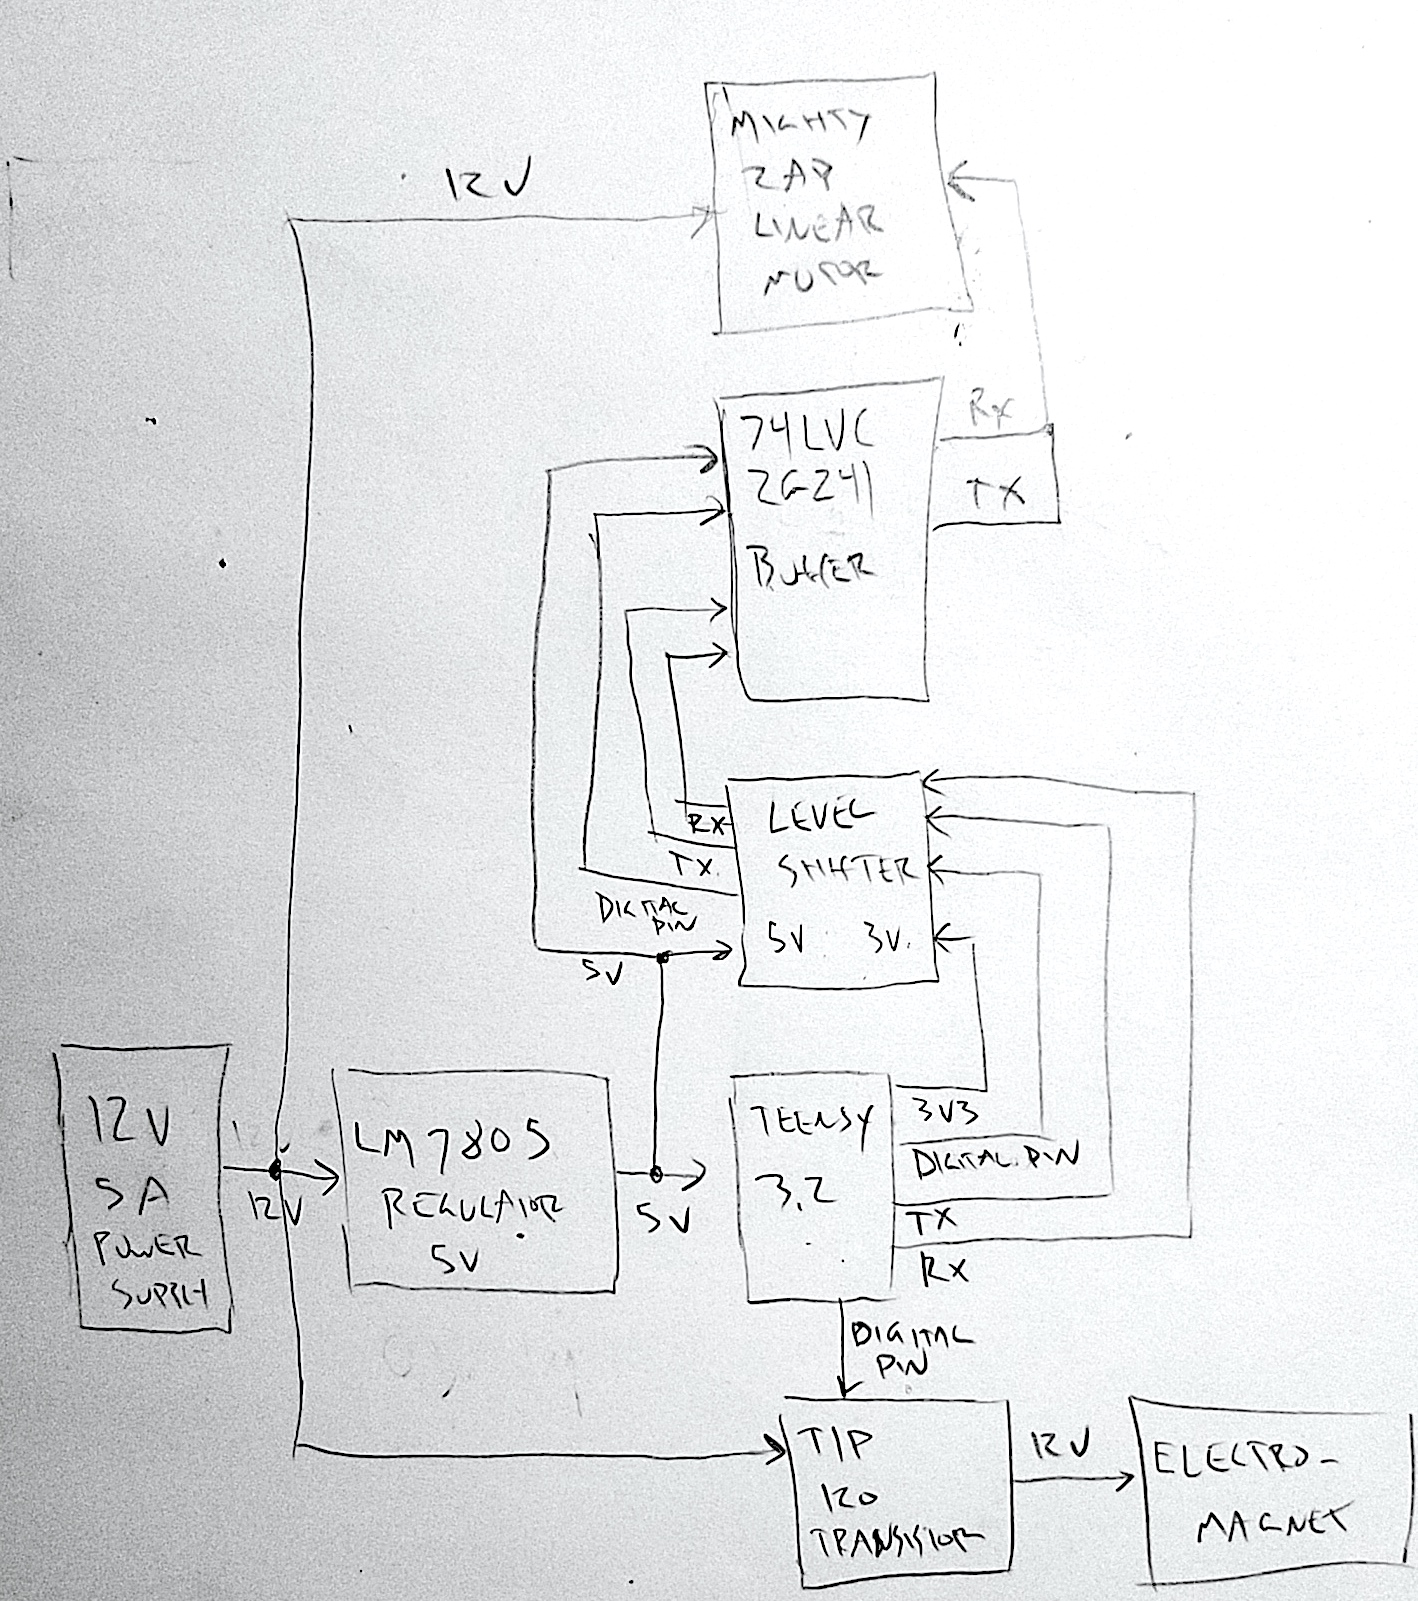 12V
MIGHTY
ZAP
LINEAR
MOTOR
RX
TX
74LVC
2G241
BUFFER
RX
TX.
DIGITAL
PIN
5V
LEVEL
SHIFTER
5V 3V.
12V
5A
POWER
SUPPLY
12V
LM7805
REGULATOR
5V
5V
TEENSY
3.2
3V3
DIGITAL PIN
TX
RX
DIGITAL
PIN
TIP
120
TRANSISTOR
12V
ELECTRO-
MAGNET